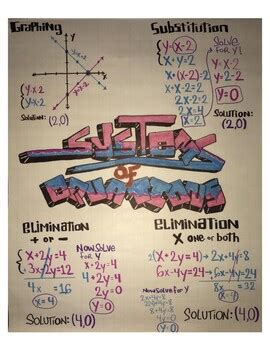 Graphing
y
x
y=x-2
Solution: (2,0)
Substitution
y=x-2
x+y=2
x+(x-2)=2
2x-2=2
2x=4
x=2
Solve
for
y!
y=x-2
y=2-2
y=0
Solution:
(2,0)
System
of
Equations
Elimination
+ or -
x+2y=4
3x-2y=12
4x = 16
x=4
Now solve
for y
x+2y=4
4+2y=4
2y=0
y=0
Solution: (4,0)
Elimination
x one or both
(x+2y=4)
6x-4y=24
2x+4y=8
+6x-4y=24
8x = 32
x=4
Now solve for y
2x+4y=8
y=0
Solution: (4,0)